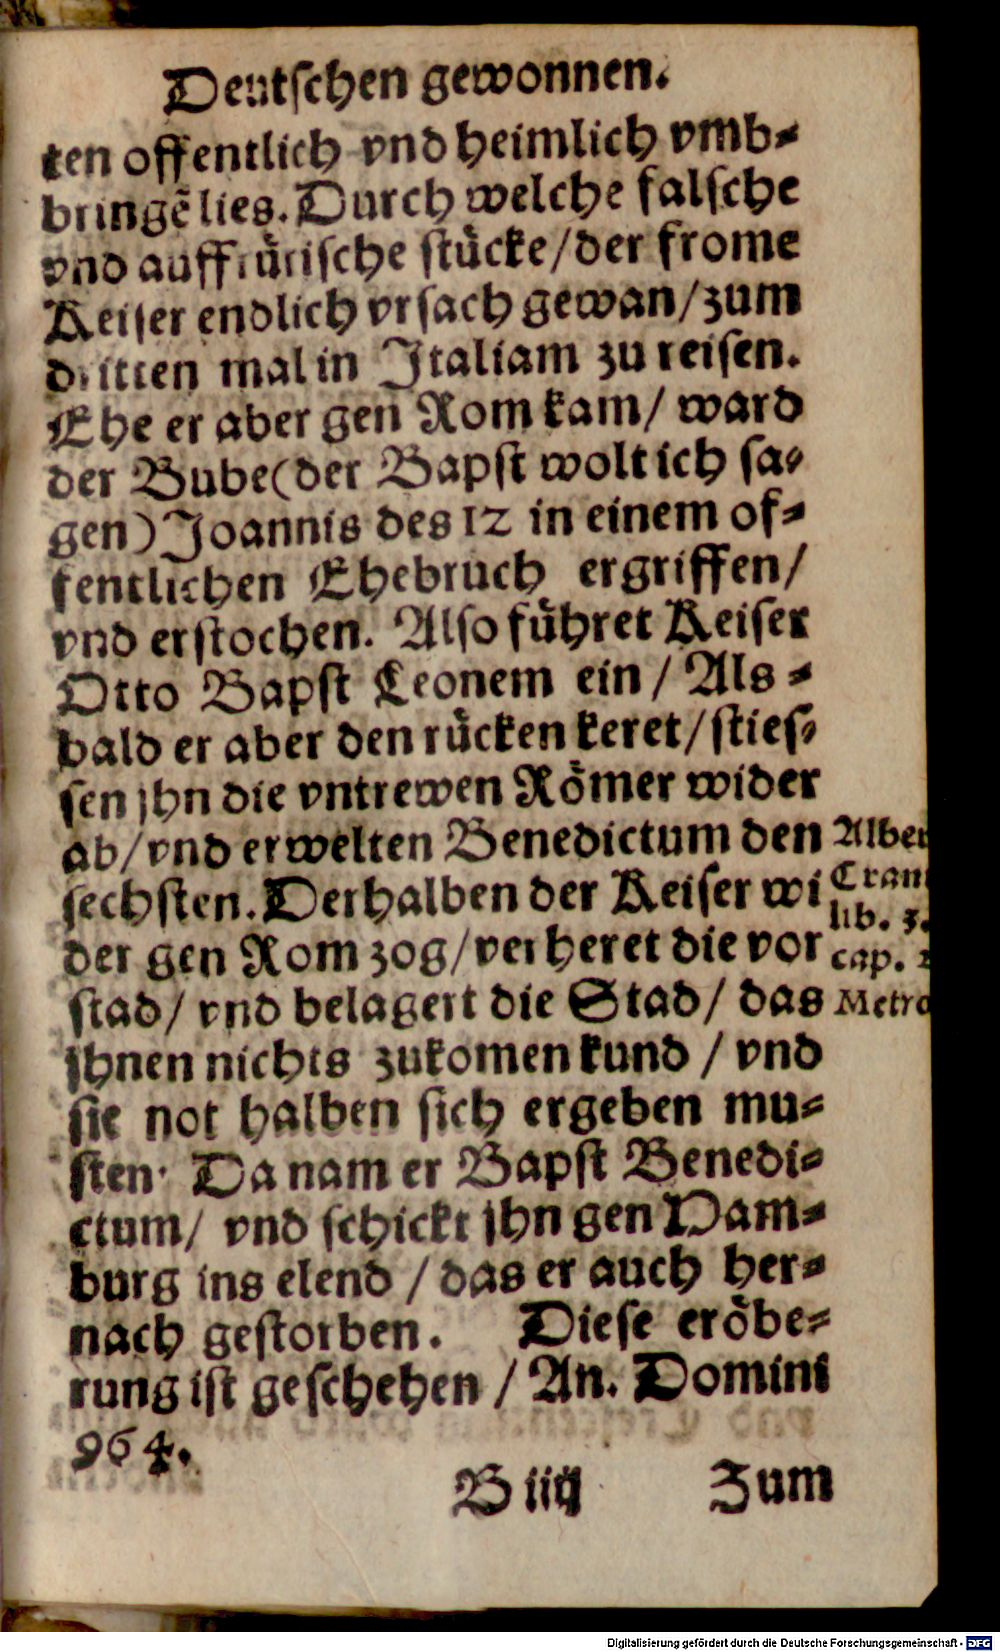 Deutschen gewonnen.
ten offentlich vnd heimlich vmb-
bringẽ lies. Durch welche falsche
vnd auffrürische stücke/ der frome
Keiser endlich vrsach gewan/ zum
dritten mal in Italiam zu reisen.
Ehe er aber gen Rom kam/ ward
der Bube (der Bapst wolt ich sa-
gen) Joannis des 12 in einem of-
fentlichen Ehebruch ergriffen/
vnd erstochen. Also führet Keiser
Otto Bapst Leonem ein / Als-
bald er aber den rücken keret/ sties-
sen jhn die vntrewen Römer wider
ab/ vnd erwelten Benedictum den
sechsten. Derhalben der Keiser wi
der gen Rom zog/ verheret die vor
stad/ vnd belagert die Stad/ das
jhnen nichts zukomen kund / vnd
sie not halben sich ergeben mu-
sten. Da nam er Bapst Benedi-
ctum/ vnd schickt jhn gen Ham-
burg ins elend / das er auch her-
nach gestorben. Diese eröbe-
rung ist geschehen / An. Domini
964.
Alber
Cran
lib. 3.
cap.
Metro
B iiij Zum
Digitalisierung gefördert durch die Deutsche Forschungsgemeinschaft - DFG